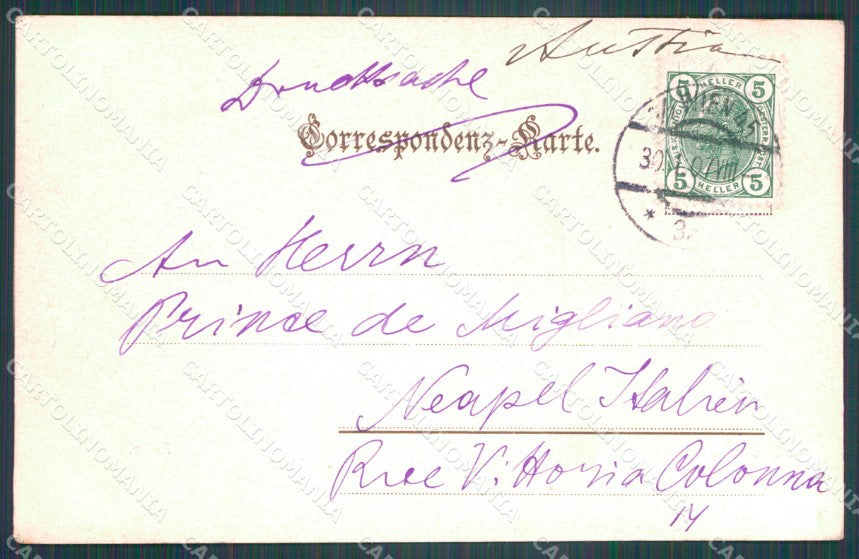 Austria
Drucksache
Correspondenz-Karte.
5 HELLER 5
WIEN 45
5 HELLER 5
An Herrn
Prince de Migliano
Neapel Italien
Rue Vittoria Colonna
14
CARTOLINOMANIA